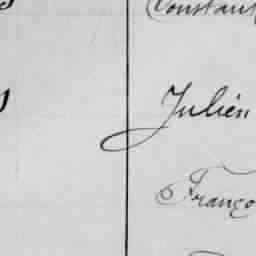 Constant
Julien
Franço